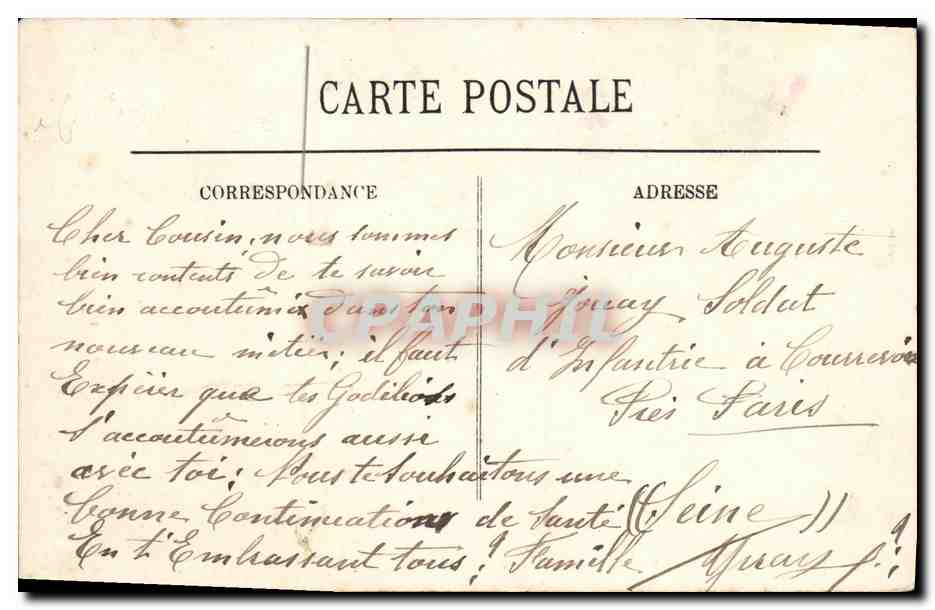 CARTE POSTALE
CORRESPONDANCE
ADRESSE
Cher Cousin, nous sommes
bien contents de te savoir
bien accoutûmé dans ton
nouveau métier; il faut
Espérer que tes Godillots
s'accoutûmerons aussi
avec toi; Nous te souhaitons une
bonne Continuations de Santé
En t'Embrassant tous; Famille
Monsieur Auguste
Jouay Soldat
d'Infantrie à Courrevoie
Près Paris
((Seine))
CPAPHIL